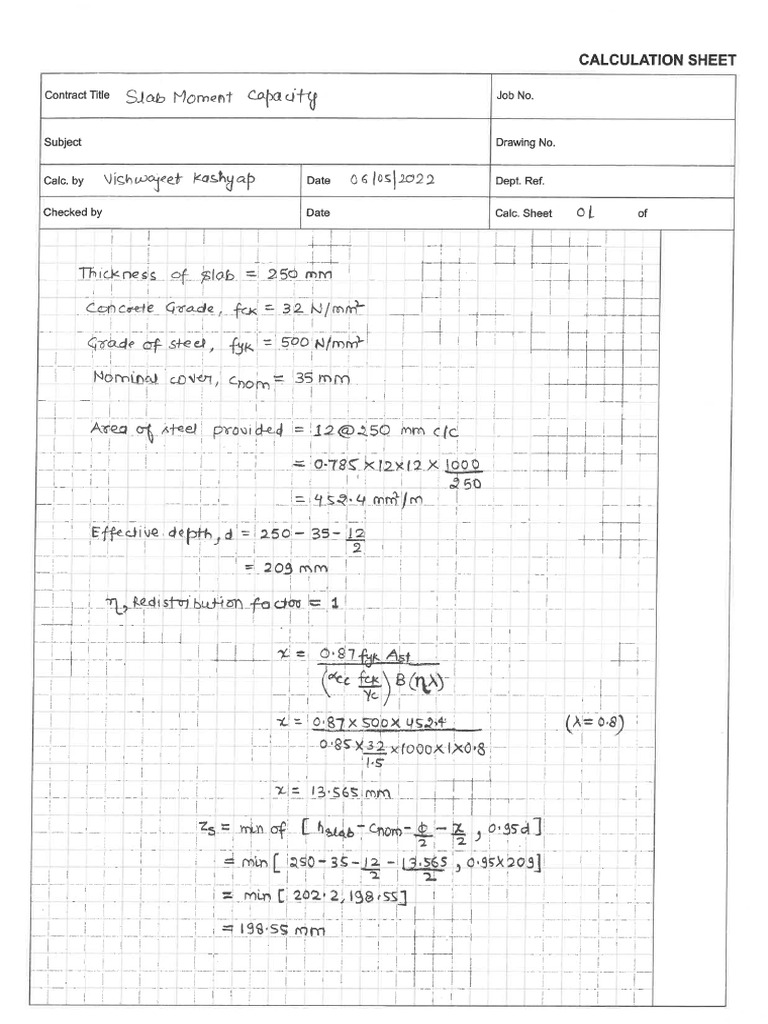 CALCULATION SHEET
Contract Title Slab Moment Capacity Job No.
Subject Drawing No.
Calc. by Vishwajeet Kashyap Date 06/05/2022 Dept. Ref.
Checked by Date Calc. Sheet 01 of
Thickness of slab = 250 mm
Concrete Grade, fck = 32 N/mm²
Grade of steel, fyk = 500 N/mm²
Nominal cover, cnom = 35 mm
Area of steel provided = 12@250 mm c/c
= 0.785 × 12 × 12 × 1000/250
= 452.4 mm²/m
Effective depth, d = 250 - 35 - 12/2
= 209 mm
η, Redistribution factor = 1
x = 0.87 fyk Ast / (αcc fck/γc) B (ηλ)
x = 0.87 × 500 × 452.4 / 0.85 × 32/1.5 × 1000 × 1 × 0.8 (λ = 0.8)
x = 13.565 mm
Zs = min of [hslab - Cnom - ϕ/2 - x/2, 0.95d]
= min [250 - 35 - 12/2 - 13.565/2, 0.95×209]
= min [202.2, 198.55]
= 198.55 mm